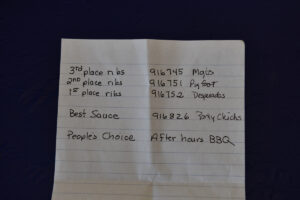 3rd place ribs 916745 Mojo
2nd place ribs 916751 Pig Foot
1st place ribs 916752 Desperados
Best Sauce 916826 Porky Chicks
Peoples Choice After hours BBQ